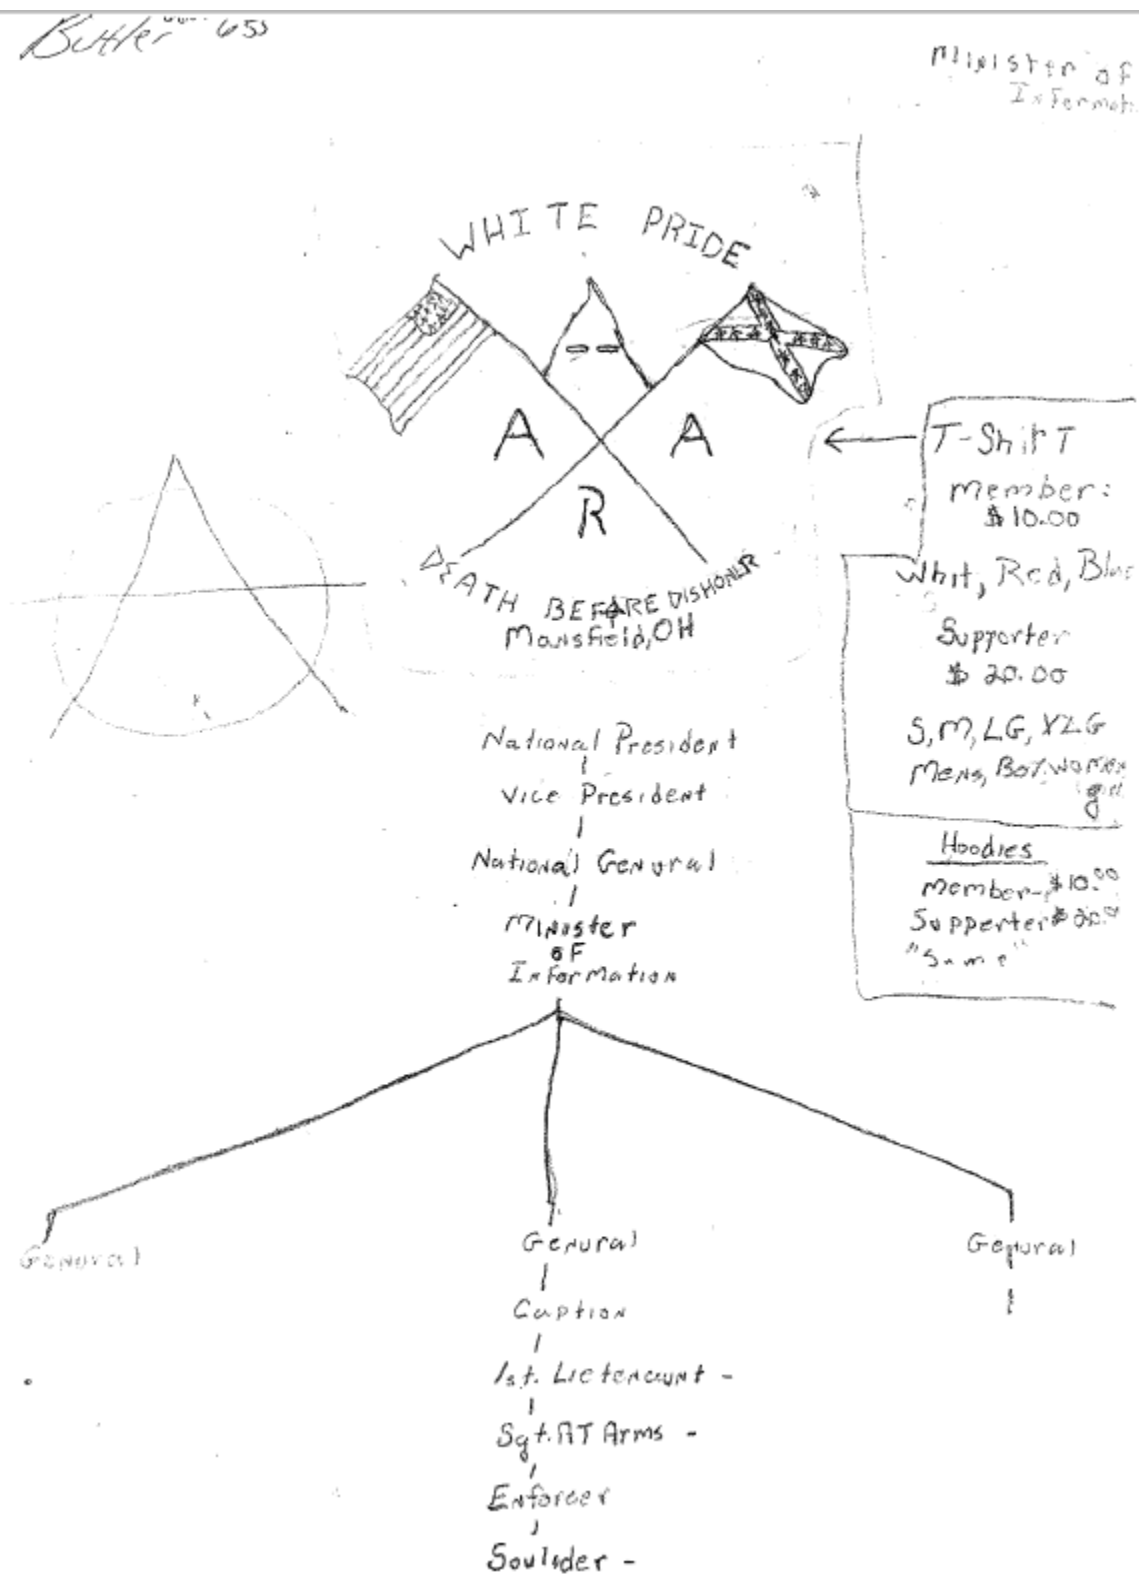 Butler 655
Minister of
WHITE PRIDE
A A
R
DEATH BEFORE DISHONER
Mansfield, OH
T-ShirT
Member:
$10.00
Whit, Red,
Supporter
$20.00
S, M, LG, XLG
Mens, Boy,
Hoodies
Member- $10.00
Supperter
"Same"
National President
Vice President
National Genural
Minister
OF
Information
Genural Genural Genural
Caption
1st. Lietenaunt -
Sgt. AT Arms -
Enforcer
Soulder -